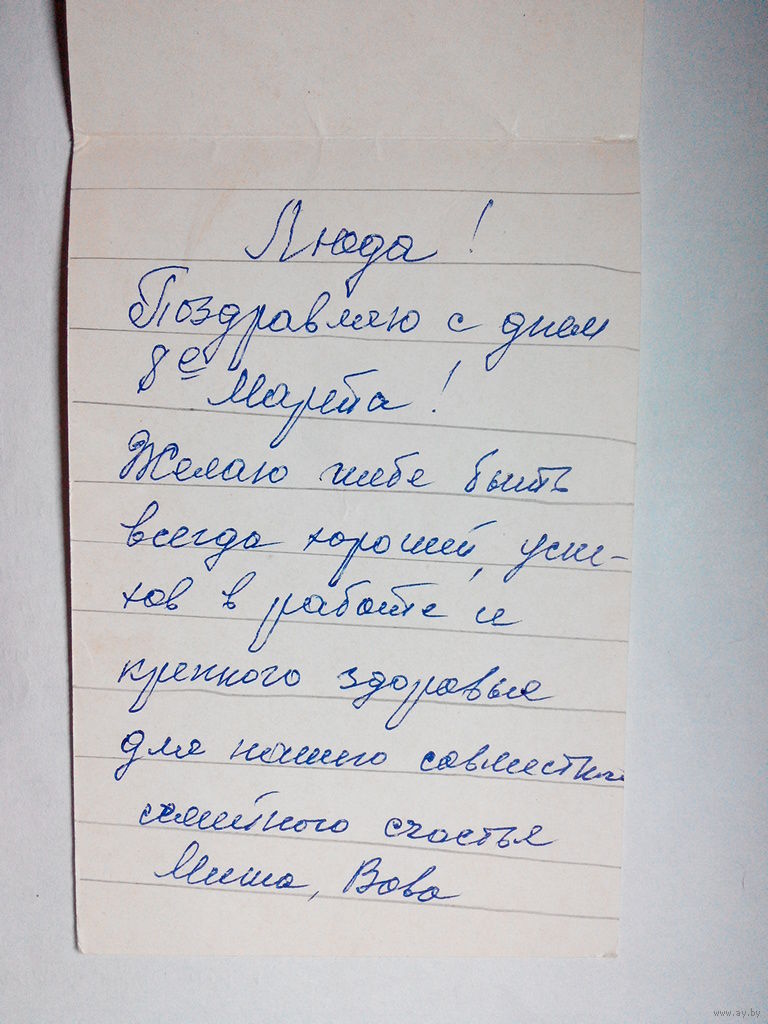 Люда!
Поздравляю с днем
8е Марта!
Желаю тебе быть
всегда хорошей, успе-
хов в работе и
крепкого здоровья
для нашего совместного
семейного счастья
Миша, Вова
www.ay.by